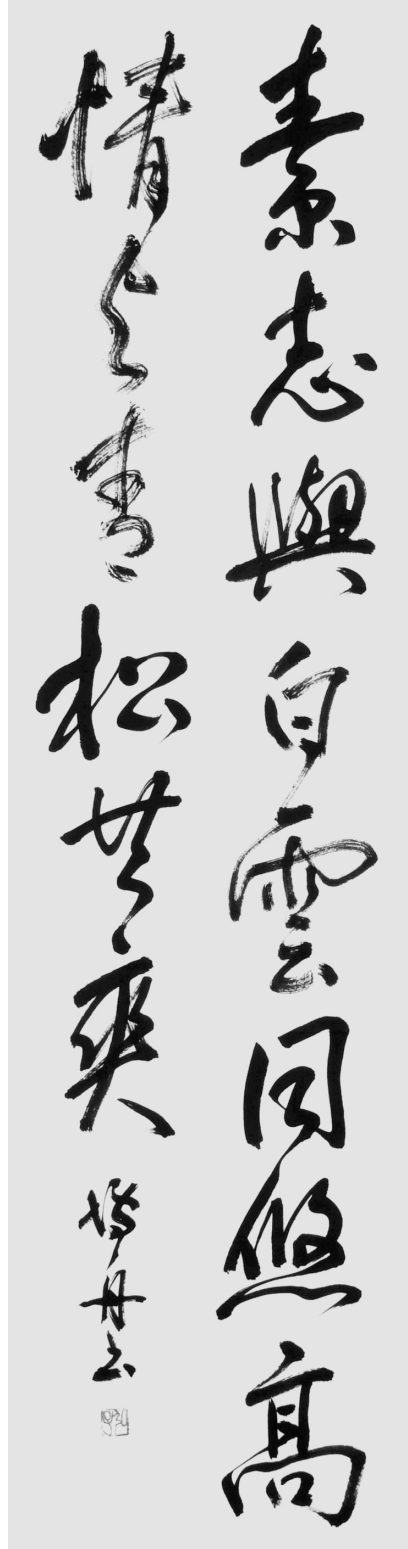 素志與白雲同悠高
情与青松共爽
丹书